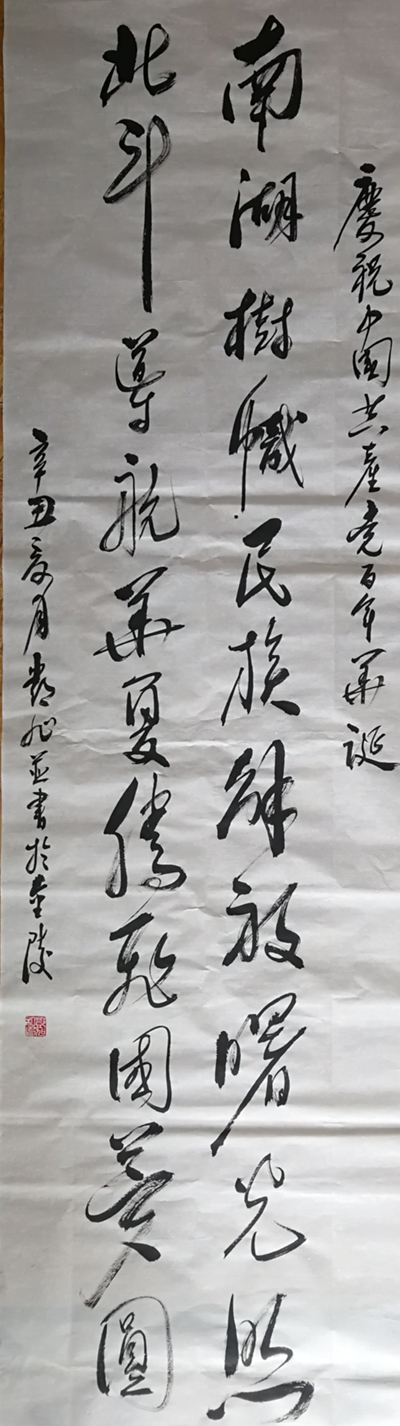 慶祝中国共產党百年華誕
南湖樹幟民族解放曙光照
北斗導航華夏騰飛國夢圓
辛丑夏月 並書於金陵